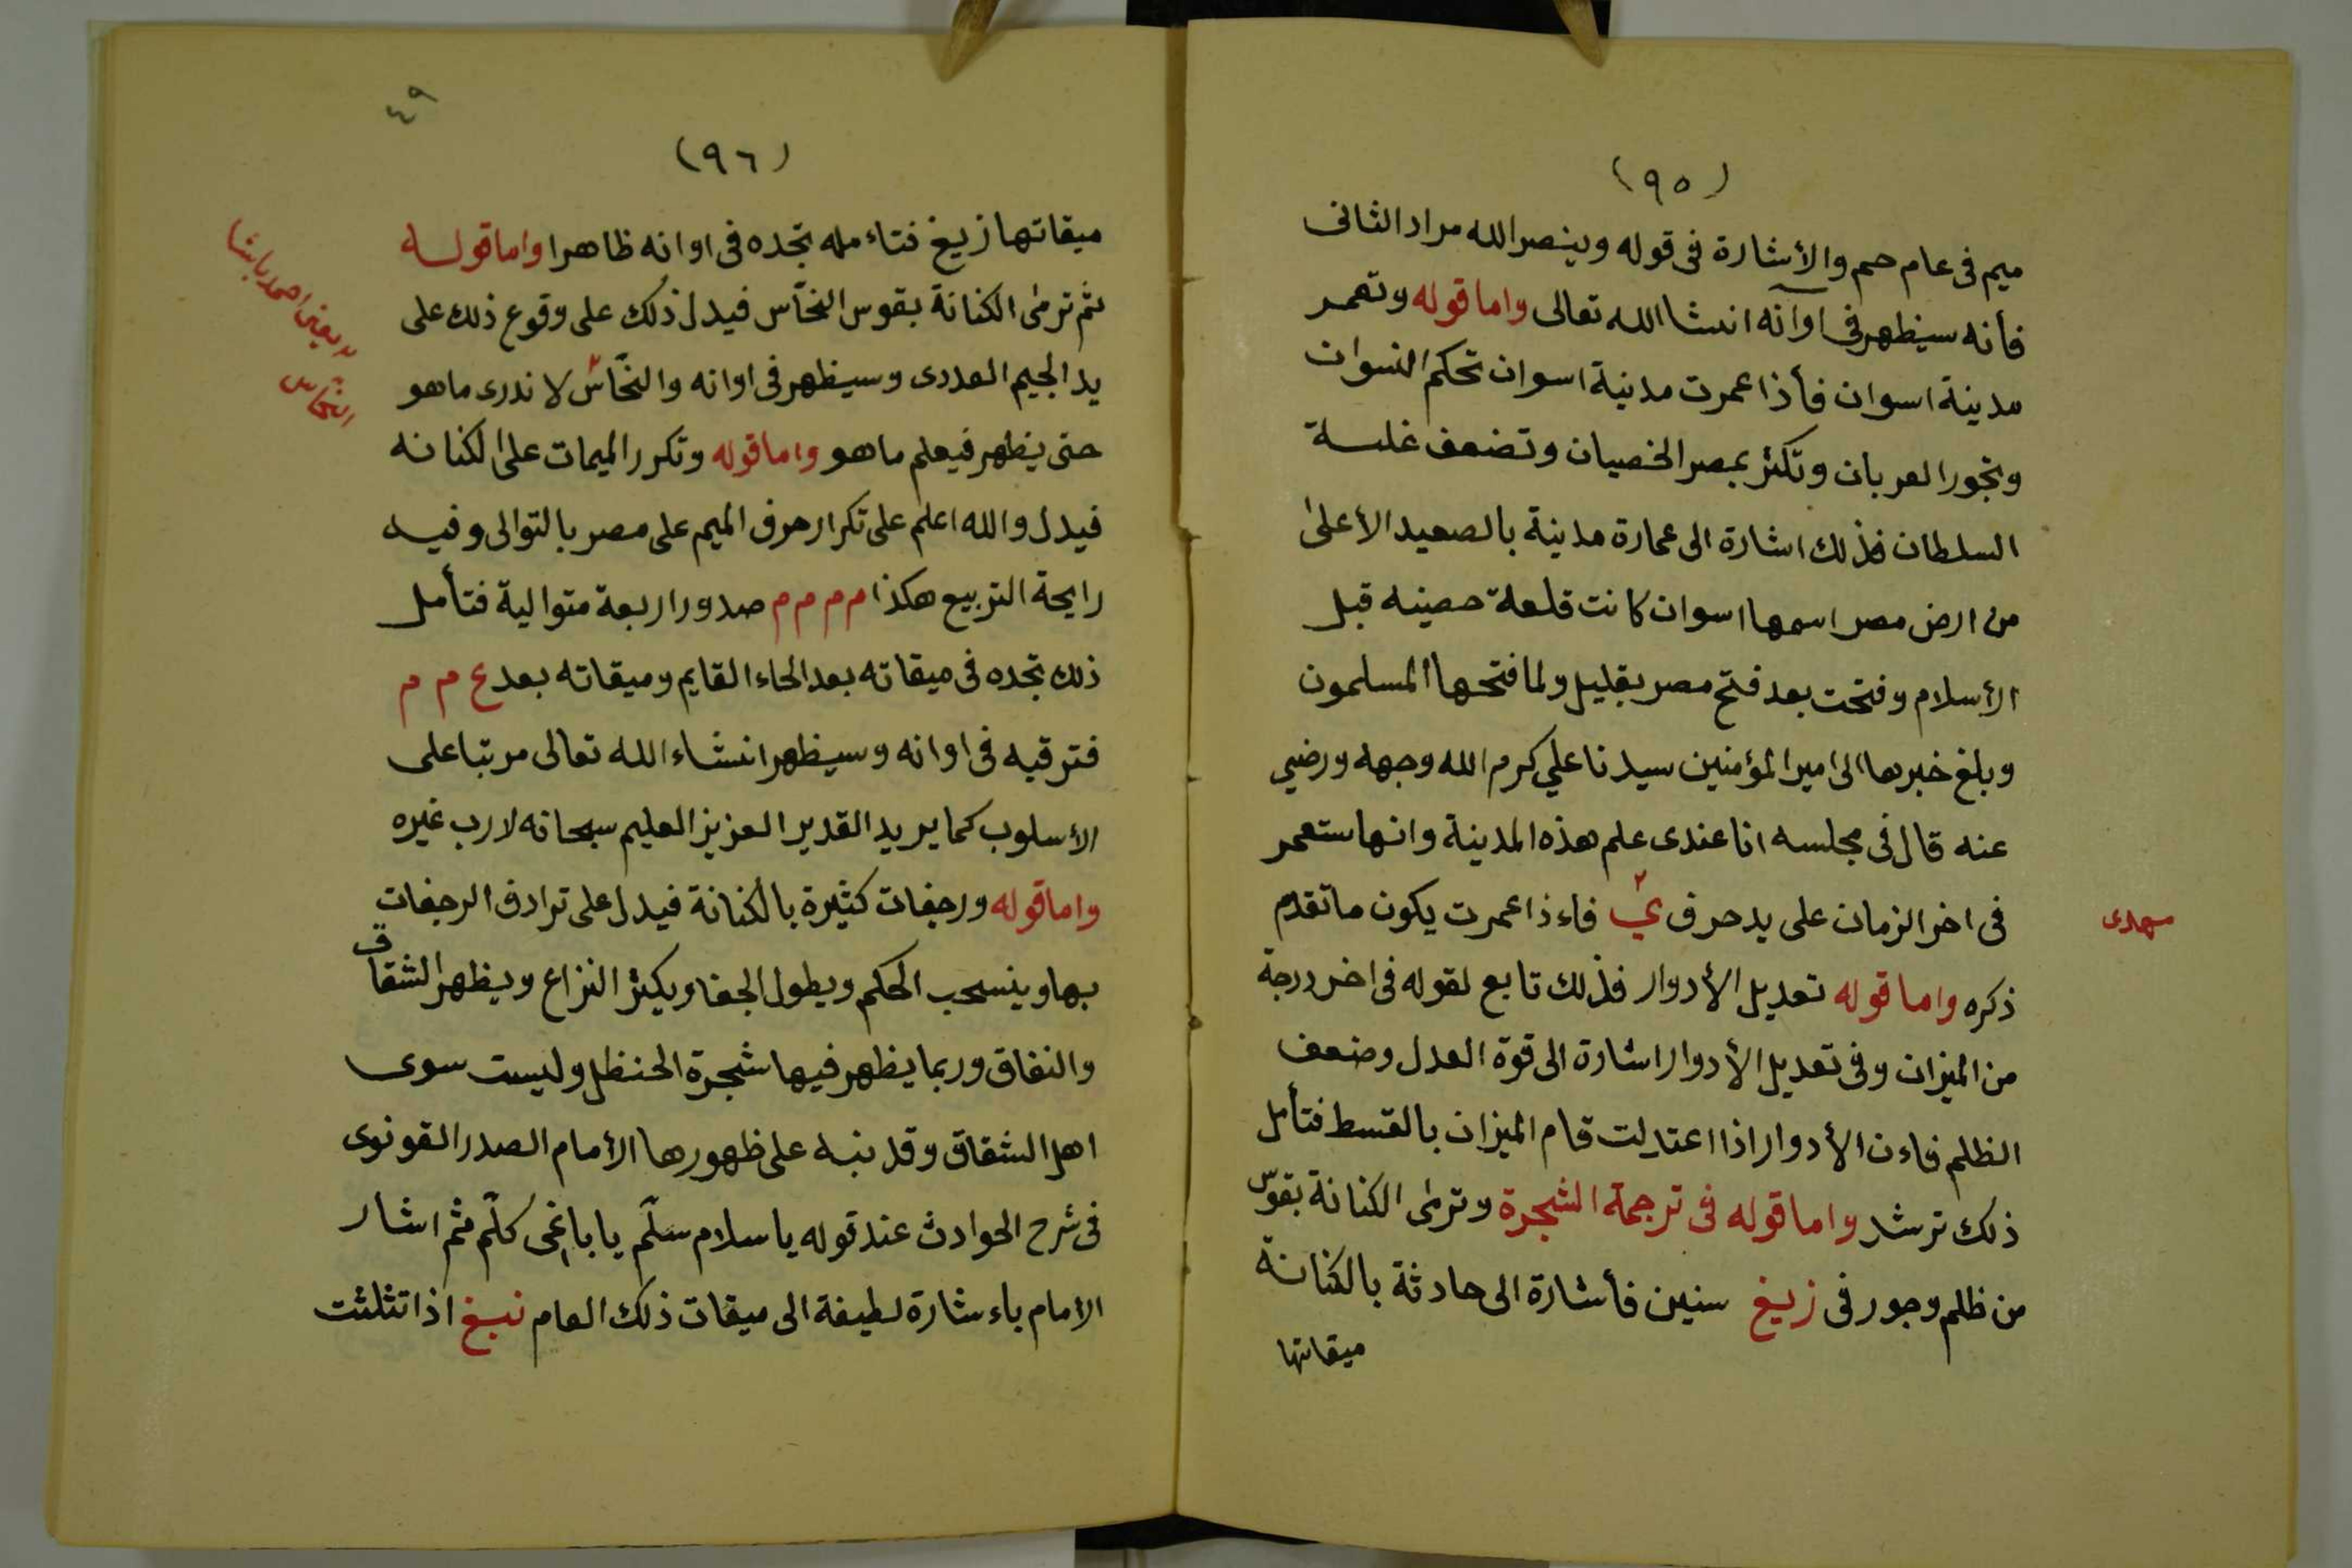 (٩٥)
ميم فى عام حم والأشارة فى قوله وينصر الله مراد الثانى
فأنه سيظهر فى اوآنه انشا الله تعالى واما قوله وتعمر
مدينة اسوان فأذا عمرت مدينة اسوان تحكم النسوان
وتجور العربان وتكثر بمصر الخصيان وتضعف غلسة
السلطان فذلك اشارة الى عمارة مدينة بالصعيد الأعلى
من ارض مصر اسمها اسوان كانت قلعة حصينه قبل
الأسلام وفتحت بعد فتح مصر بقليل ولما فتحها المسلمون
وبلغ خبرها الى امير المؤمنين سيدنا علي كرم الله وجهه ورضي
عنه قال فى مجلسه انا عندى علم هذه المدينة وانها ستعمر
فى اخر الزمان على يد حرف ي٢ فاءذا عمرت يكون ما تقدم
مهدى
ذكره واما قوله تعديل الأدوار فذلك تابع لقوله فى اخر درجة
من الميزان وفى تعديل الأدوار اشارة الى قوة العدل وضعف
الظلم فاءن الأدوار اذا اعتدلت قام الميزان بالقسط فتأمل
ذلك ترشد واما قوله فى ترجمة الشجرة وترمى الكنانة بقوس
من ظلم وجور فى زيغ سنين فأشارة الى حادثة بالكنانة
ميقاتها
٤٩
(٩٦)
ميقاتها زيغ فتاءمله تجده فى اوانه ظاهرا واما قوله
ثم ترمى الكنانة بقوس النحّاس فيدل ذلك على وقوع ذلك على
يد الجيم العددى وسيظهر فى اوانه والنحّاس٢ لا ندرى ما هو
٢ يعنى احمد باشا
النحاس
حتى يظهر فيعلم ما هو واما قوله وتكرر الميمات على الكنانه
فيدل والله اعلم على تكرار حرف الميم على مصر بالتوالى وفيه
رايحة التربيع هكذا م م م م صدورا اربعة متوالية فتأمل
ذلك تجده فى ميقاته بعد الحاء القايم وميقاته بعد ع م م
فترقبه فى اوانه وسيظهر انشاء الله تعالى مرتبا على
الأسلوب كما يريد القدير العزيز العليم سبحانه لا رب غيره
واما قوله ورجفات كثيرة بالكنانة فيدل على ترادف الرجفات
بها وينسحب الحكم ويطول الجفا ويكثر النزاع ويظهر الشقاق
والنفاق وربما يظهر فيها شجرة الحنظل وليست سوى
اهل الشقاق وقد نبه على ظهورها الأمام الصدر القونوى
فى شرح الحوادث عند قوله يا سلام سلّم يا باغى كلّم ثم اشار
الأمام باءشارة لطيفة الى ميقات ذلك العام نبغ اذا تثلثت